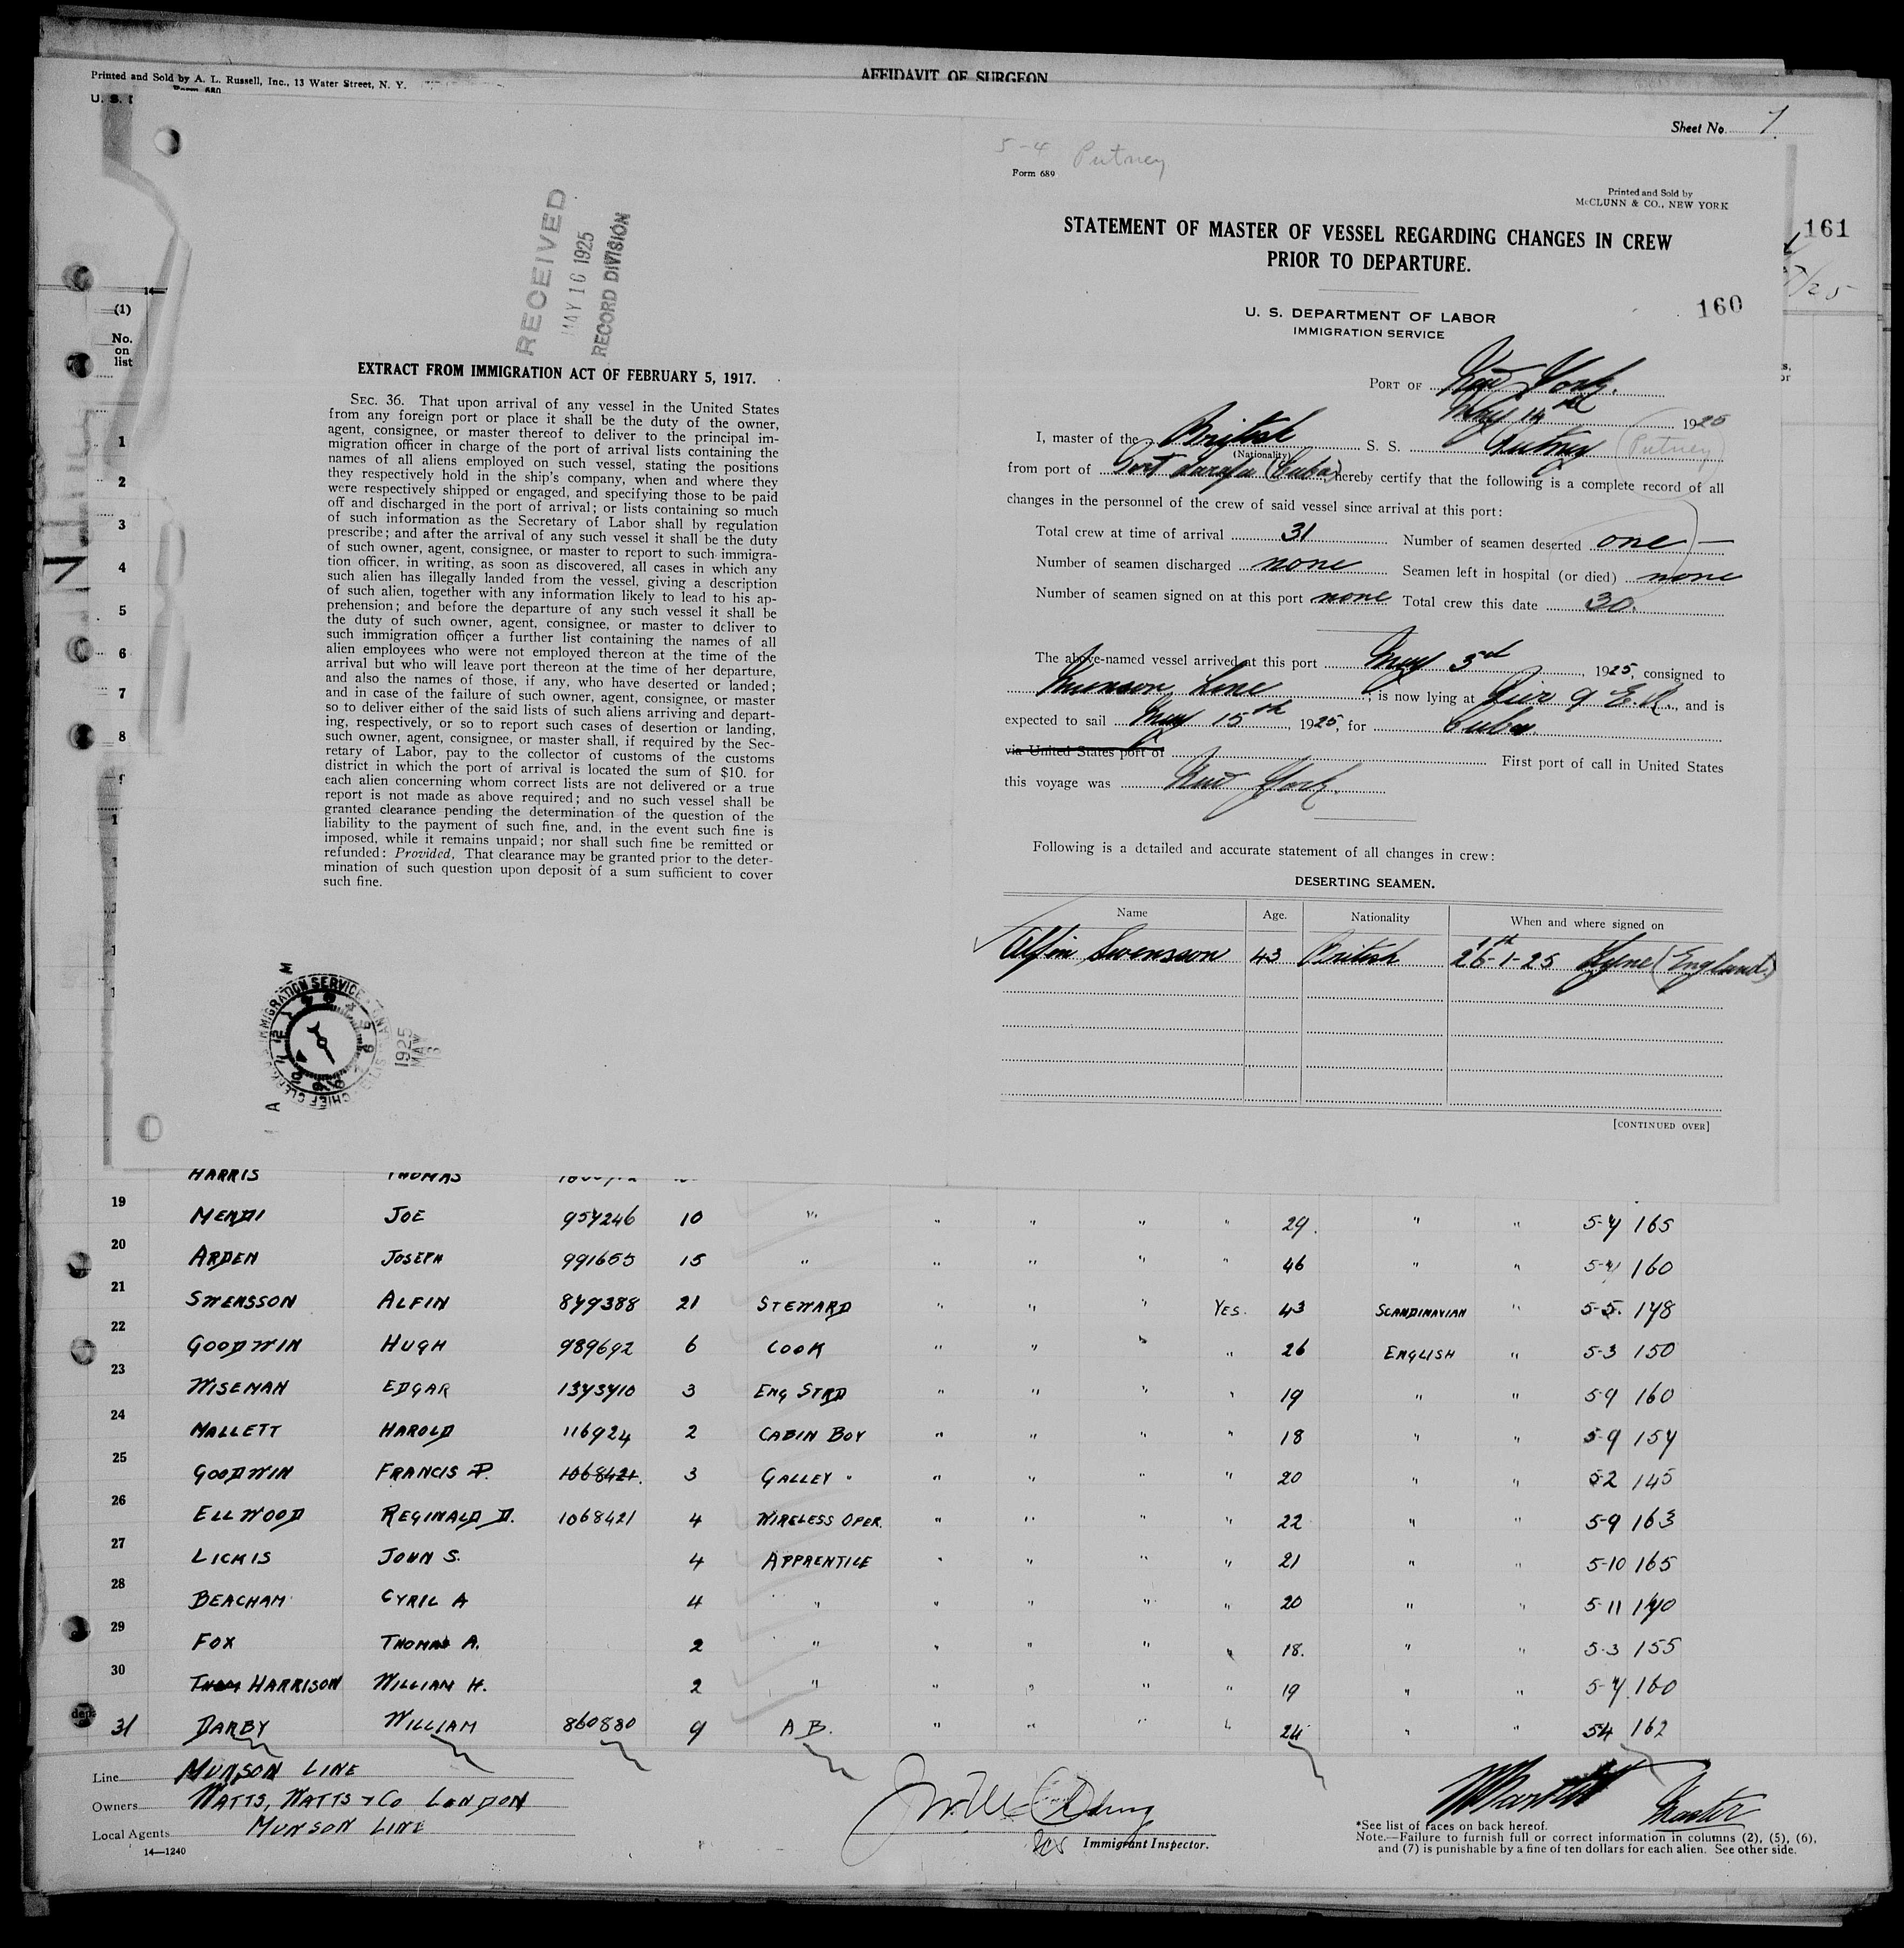 Printed and Sold by A. L. Russell, Inc., 13 Water Street, N. Y.
AFFIDAVIT OF SURGEON
Form 680
U. S.
Sheet No. 1.
161
(1)
No.
on
list
1
2
3
4
5
6
7
8
RECEIVED
MAY 16 1925
RECORD DIVISION
EXTRACT FROM IMMIGRATION ACT OF FEBRUARY 5, 1917.
SEC. 36. That upon arrival of any vessel in the United States
from any foreign port or place it shall be the duty of the owner,
agent, consignee, or master thereof to deliver to the principal im-
migration officer in charge of the port of arrival lists containing the
names of all aliens employed on such vessel, stating the positions
they respectively hold in the ship's company, when and where they
were respectively shipped or engaged, and specifying those to be paid
off and discharged in the port of arrival; or lists containing so much
of such information as the Secretary of Labor shall by regulation
prescribe; and after the arrival of any such vessel it shall be the duty
of such owner, agent, consignee, or master to report to such immigra-
tion officer, in writing, as soon as discovered, all cases in which any
such alien has illegally landed from the vessel, giving a description
of such alien, together with any information likely to lead to his ap-
prehension; and before the departure of any such vessel it shall be
the duty of such owner, agent, consignee, or master to deliver to
such immigration officer a further list containing the names of all
alien employees who were not employed thereon at the time of the
arrival but who will leave port thereon at the time of her departure,
and also the names of those, if any, who have deserted or landed;
and in case of the failure of such owner, agent, consignee, or master
so to deliver either of the said lists of such aliens arriving and depart-
ing, respectively, or so to report such cases of desertion or landing,
such owner, agent, consignee, or master shall, if required by the Sec-
retary of Labor, pay to the collector of customs of the customs
district in which the port of arrival is located the sum of $10. for
each alien concerning whom correct lists are not delivered or a true
report is not made as above required; and no such vessel shall be
granted clearance pending the determination of the question of the
liability to the payment of such fine, and, in the event such fine is
imposed, while it remains unpaid; nor shall such fine be remitted or
refunded: Provided, That clearance may be granted prior to the deter-
mination of such question upon deposit of a sum sufficient to cover
such fine.
IMMIGRATION SERVICE
CHIEF CLERK
1925
MAY
5-4 Putney
Form 689
Printed and Sold by
McCLUNN & CO., NEW YORK
STATEMENT OF MASTER OF VESSEL REGARDING CHANGES IN CREW
PRIOR TO DEPARTURE.
160
U. S. DEPARTMENT OF LABOR
IMMIGRATION SERVICE
PORT OF New York.
May 14th 1925
I, master of the British S. S. Putney (Putney)
(Nationality)
from port of (Cuba) hereby certify that the following is a complete record of all
changes in the personnel of the crew of said vessel since arrival at this port:
Total crew at time of arrival 31 Number of seamen deserted one
Number of seamen discharged none Seamen left in hospital (or died) none
Number of seamen signed on at this port none Total crew this date 30.
The above-named vessel arrived at this port May 3rd, 1925, consigned to
Munson Line, is now lying at Pier 9 E.R., and is
expected to sail May 15th, 1925, for Cuba
via United States port of First port of call in United States
this voyage was New York.
Following is a detailed and accurate statement of all changes in crew:
DESERTING SEAMEN.
Name Age. Nationality When and where signed on
Alfin Swensson 43 British 26-1-25 Tyne (England)
[CONTINUED OVER]
HARRIS THOMAS
19 MENDI JOE 957246 10 " " " " " 29. " " 5-7 165
20 ARDEN JOSEPH 991655 15 " " " " " 46 " " 5-7 160
21 SWENSSON ALFIN 879388 21 STEWARD " " " YES. 43 SCANDINAVIAN " 5-5. 178
22 GOODWIN HUGH 989692 6 COOK " " " " 26 ENGLISH " 5-3 150
23 WISEMAN EDGAR 1373710 3 ENG STRD " " " " 19 " " 5-9 160
24 MALLETT HAROLD 116924 2 CABIN BOY " " " " 18 " " 5-9 157
25 GOODWIN FRANCIS P. 1068421. 3 GALLEY " " " " " 20 " " 5-2 145
26 ELLWOOD REGINALD D. 1068421 4 WIRELESS OPER. " " " " 22 " " 5-9 163
27 LICKIS JOHN S. 4 APPRENTICE " " " " 21 " " 5-10 165
28 BEACHAM CYRIL A 4 " " " " " 20 " " 5-11 170
29 FOX THOMAS A. 2 " " " " " 18. " " 5-3 155
30 THOM HARRISON WILLIAM H. 2 " " " " " 19 " " 5-7. 160
31 DARBY WILLIAM 860880 9 A B. " " " " 24 " " 5-4 162
Line MUNSON LINE
Owners WATTS, WATTS & Co LONDON
Local Agents MUNSON LINE
14—1240
Immigrant Inspector.
Master
*See list of races on back hereof.
Note.—Failure to furnish full or correct information in columns (2), (5), (6),
and (7) is punishable by a fine of ten dollars for each alien. See other side.